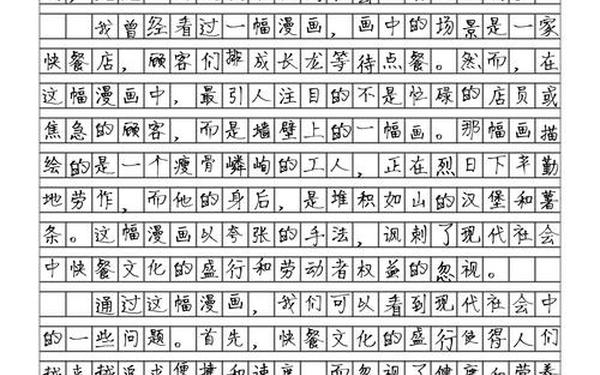 我曾经看过一幅漫画，画中的场景是一家
快餐店，顾客们排成长龙等待点餐。然而，在
这幅漫画中，最引人注目的不是忙碌的店员或
焦急的顾客，而是墙壁上的一幅画。那幅画描
绘的是一个瘦骨嶙峋的工人，正在烈日下辛勤
地劳作，而他的身后，是堆积如山的汉堡和薯
条。这幅漫画以夸张的手法，讽刺了现代社会
中快餐文化的盛行和劳动者权益的忽视。
通过这幅漫画，我们可以看到现代社会中
的一些问题。首先，快餐文化的盛行使得人们
越来越追求便捷和速度，而忽视了健康和营养